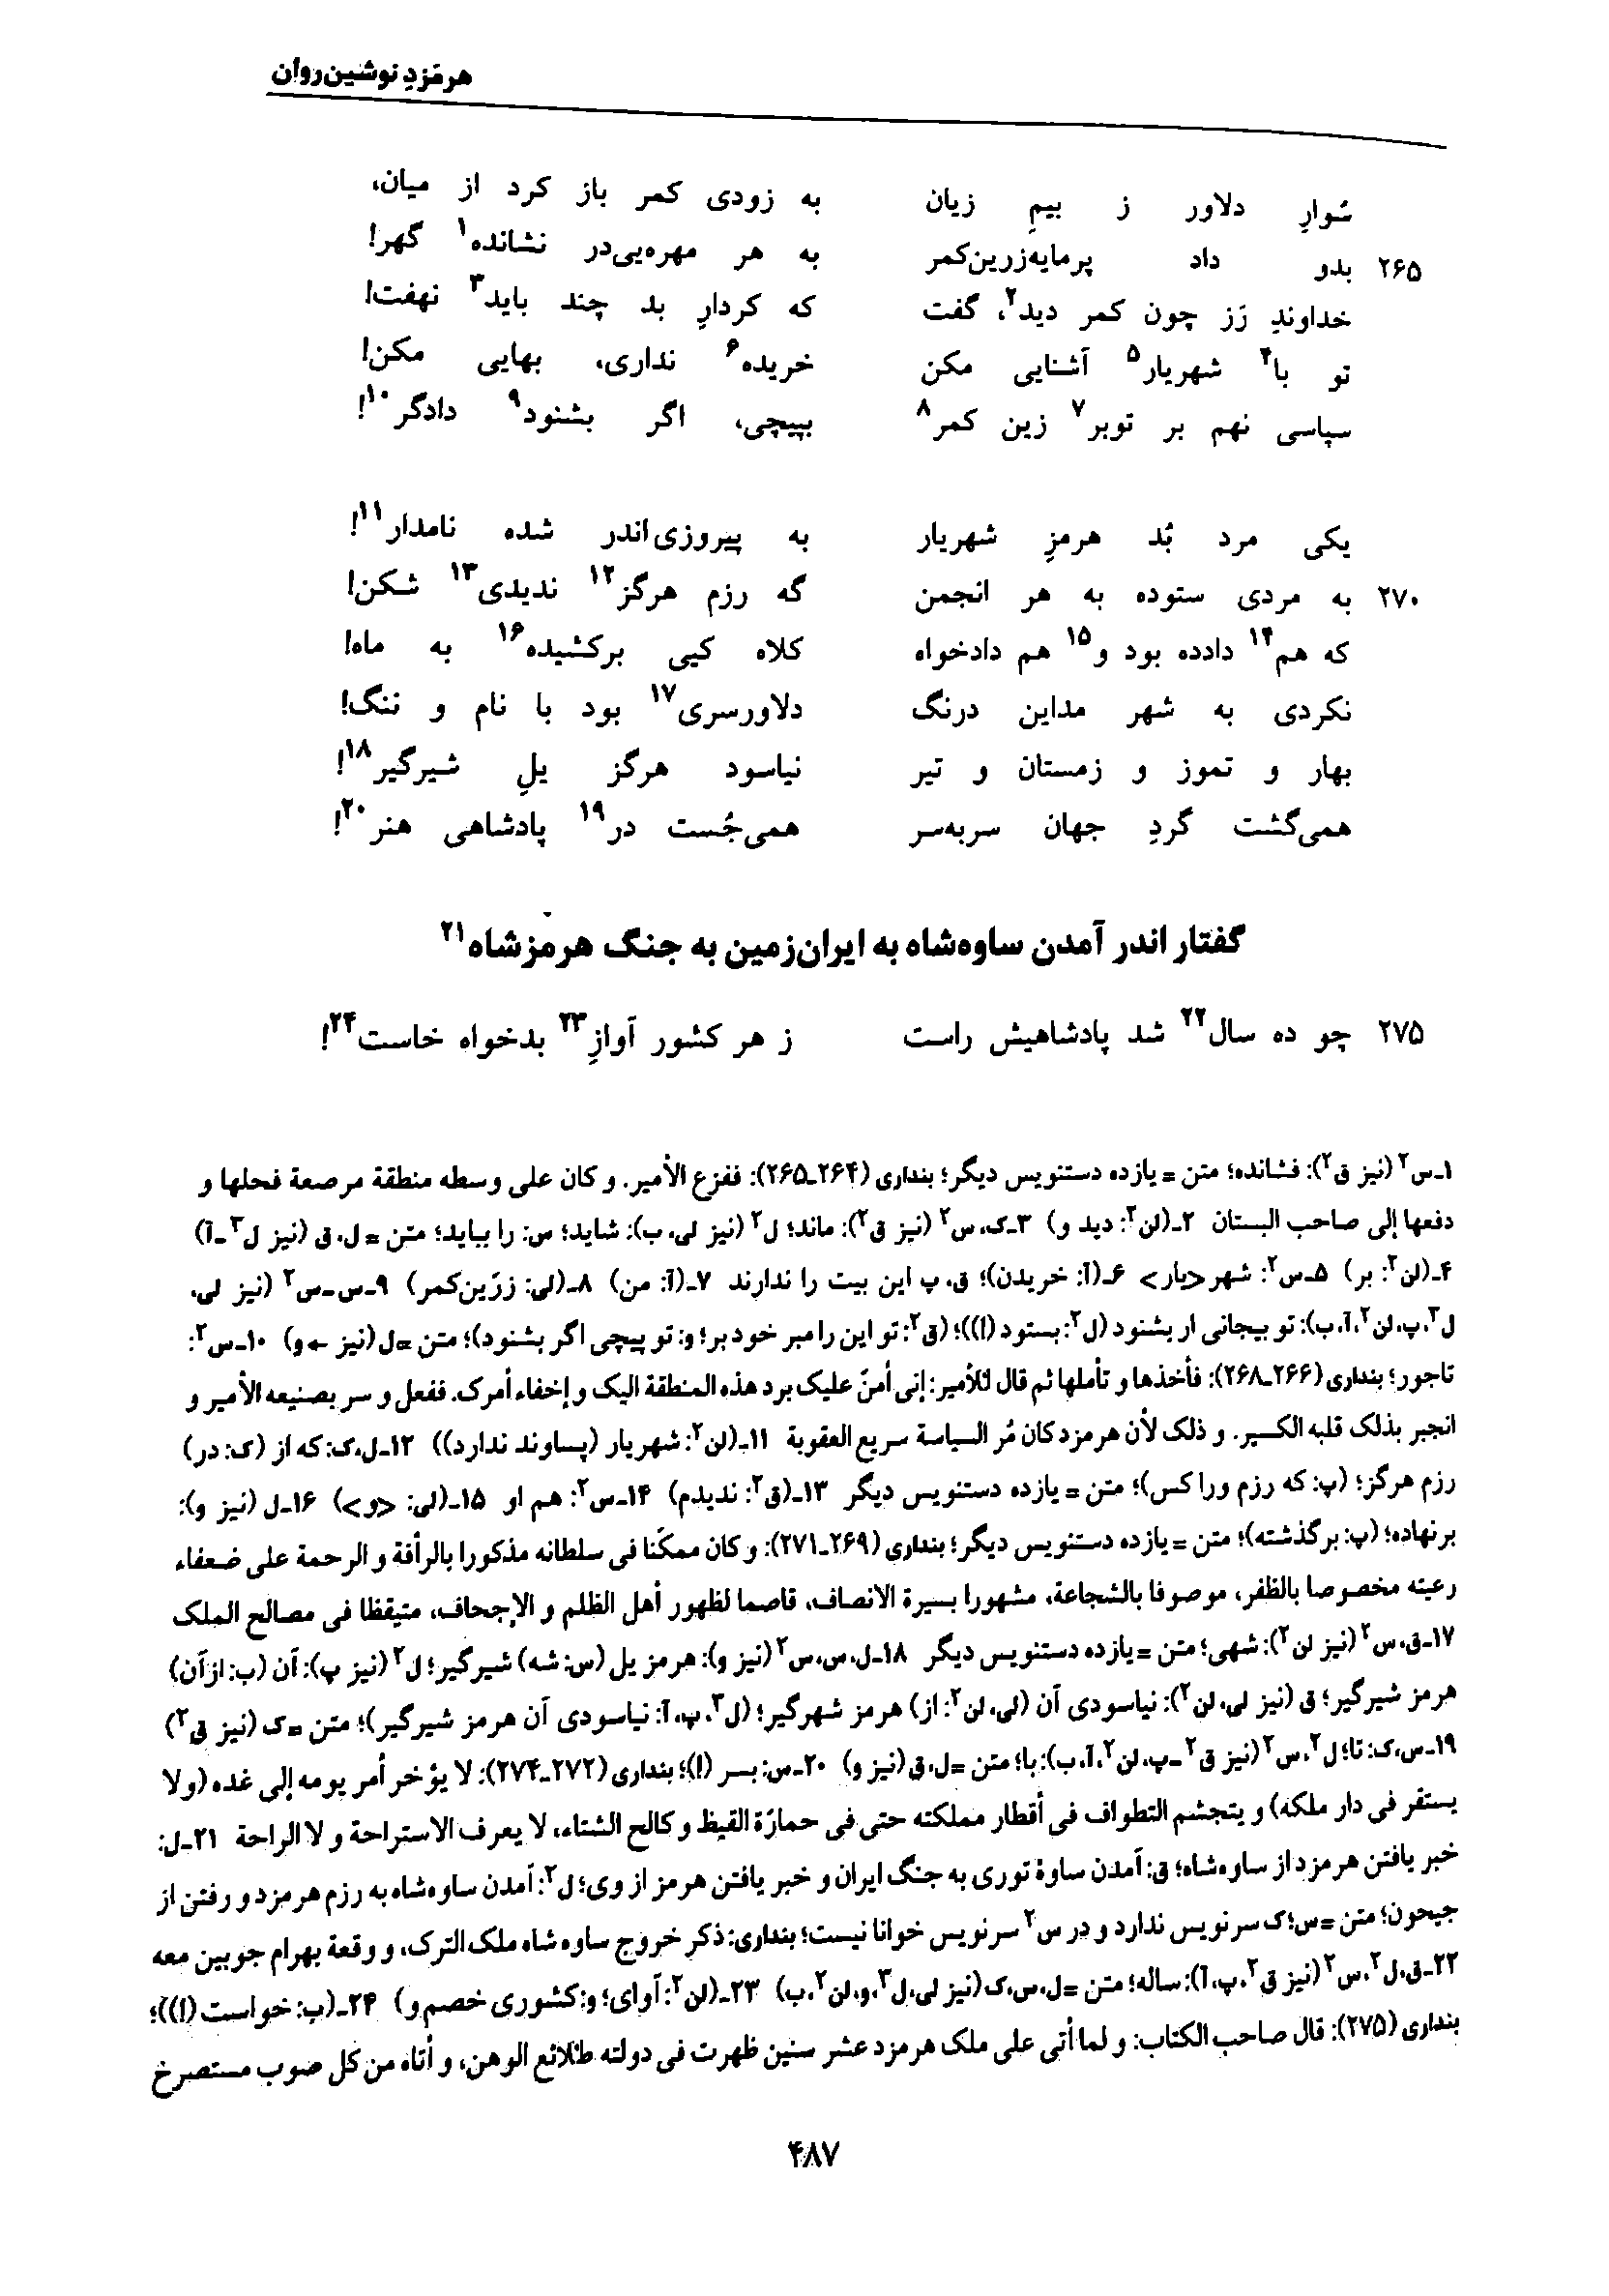 هرمَزدِ نوشین‌روان
سُوارِ دلاور ز بیمِ زیان به زودی کمر باز کرد از میان،
۲۶۵ بدو داد پرمایه‌زرین‌کمر به هر مهره‌یی‌در نشانده۱ گهر!
خداوندِ رَز چون کمر دید۲، گفت که کردارِ بد چند باید۳ نهفت!
تو با۴ شهریار۵ آشنایی مکن خریده۶ نداری، بهایی مکن!
سپاسی نهم بر توبر۷ زین کمر۸ بپیچی، اگر بشنود۹ دادگر۱۰!
یکی مرد بُد هرمزِ شهریار به پیروزی‌اندر شده نامدار۱۱!
۲۷۰ به مردی ستوده به هر انجمن گه رزم هرگز۱۲ ندیدی۱۳ شکن!
که هم۱۴ دادده بود و۱۵ هم دادخواه کلاه کیی برکشیده۱۶ به ماه!
نکردی به شهر مداین درنگ دلاورسری۱۷ بود با نام و ننگ!
بهار و تموز و زمستان و تیر نیاسود هرگز یلِ شیرگیر۱۸!
همی‌گشت گردِ جهان سربه‌سر همی‌جُست در۱۹ پادشاهی هنر۲۰!
گفتار اندر آمدن ساوه‌شاه به ایران‌زمین به جنگ هرمزشاه۲۱
۲۷۵ چو ده سال۲۲ شد پادشاهیش راست ز هر کشور آوازِ۲۳ بدخواه خاست۲۴!
۱ـ س۲ (نیز ق۲): فشانده؛ متن = یازده دستنویس دیگر؛ بنداری (۲۶۴ـ۲۶۵): ففزع الأمیر. و کان علی وسطه منطقة مرصعة فحلها و
دفعها إلی صاحب البستان ۲ـ (لن۲: دید و) ۳ـ ک، س۲ (نیز ق۲): ماند؛ ل۲ (نیز لی، ب): شاید؛ س: را بباید؛ متن = ل، ق (نیز ل۳ـ آ)
۴ـ (لن۲: بر) ۵ـ س۲: شهر <یار> ۶ـ (آ: خریدن)؛ ق، پ این بیت را ندارند ۷ـ (آ: من) ۸ـ (لی: زرّین‌کمر) ۹ـ س ـ س۲ (نیز لی،
ل۳، پ، لن۲، آ، ب): تو بیجانی ار بشنود (ل۲: بستود (!))؛ (ق۲: تو این را مبر خود بر؛ و: تو پیچی اگر بشنود)؛ متن = ل (نیز ← و) ۱۰ـ س۲:
تاجور؛ بنداری (۲۶۶ـ۲۶۸): فأخذها و تأملها ثم قال للأمیر: إنی أمنّ علیک برد هذه المنطقة الیک و إخفاء أمرک. ففعل و سر بصنیعه الأمیر و
انجبر بذلک قلبه الکسیر. و ذلک لأن هرمزد کان مُر السیاسة سریع العقوبة ۱۱ـ (لن۲: شهریار (پساوند ندارد)) ۱۲ـ ل، ک: که از (ک: در)
رزم هرگز؛ (پ: که رزم ورا کس)؛ متن = یازده دستنویس دیگر ۱۳ـ (ق۲: ندیدم) ۱۴ـ س۲: هم او ۱۵ـ (لی: <و>) ۱۶ـ ل (نیز و):
برنهاده؛ (پ: برگذشته)؛ متن = یازده دستنویس دیگر؛ بنداری (۲۶۹ـ۲۷۱): و کان ممکّنا فی سلطانه مذکورا بالرأفة و الرحمة علی ضعفاء
رعیته مخصوصا بالظفر، موصوفا بالشجاعة، مشهورا بسیرة الانصاف، قاصما لظهور أهل الظلم و الإجحاف، متیقظا فی مصالح الملک
۱۷ـ ق، س۲ (نیز لن۲): شهی؛ متن = یازده دستنویس دیگر ۱۸ـ ل، س، س۲ (نیز و): هرمز یل (س: شه) شیرگیر؛ ل۲ (نیز پ): آن (ب: از آن)
هرمز شیرگیر؛ ق (نیز لی، لن۲): نیاسودی آن (لی، لن۲: از) هرمز شهرگیر؛ (ل۳، پ، آ: نیاسودی آن هرمز شیرگیر)؛ متن = ک (نیز ق۲)
۱۹ـ س، ک: تا؛ ل۲، س۲ (نیز ق۲ ـ پ، لن۲، آ، ب): با؛ متن = ل، ق (نیز و) ۲۰ـ س: بسر (!)؛ بنداری (۲۷۲ـ۲۷۴): لا یؤخر أمر یومه إلی غده (ولا
یستقر فی دار ملکه) و یتجشم التطواف فی أقطار مملکته حتی فی حمارّة القیظ و کالح الشتاء، لا یعرف الاستراحة و لا الراحة ۲۱ـ ل:
خبر یافتن هرمزد از ساوه‌شاه؛ ق: آمدن ساوهٔ توری به جنگ ایران و خبر یافتن هرمز از وی؛ ل۲: آمدن ساوه‌شاه به رزم هرمزد و رفتن از
جیحون؛ متن = س؛ ک سرنویس ندارد و در س۲ سرنویس خوانا نیست؛ بنداری: ذکر خروج ساوه شاه ملک الترک، و وقعة بهرام جوبین معه
۲۲ـ ق، ل۲، س۲ (نیز ق۲، پ، آ): ساله؛ متن = ل، س، ک (نیز لی، ل۳، و، لن۲، ب) ۲۳ـ (لن۲: آوای؛ و: کشوری خصم و) ۲۴ـ (ب: خواست (!))؛
بنداری (۲۷۵): قال صاحب الکتاب: و لما أتی علی ملک هرمزد عشر سنین ظهرت فی دولته طلائع الوهن، و أتاه من کل صوب مستصرخ
۴۸۷